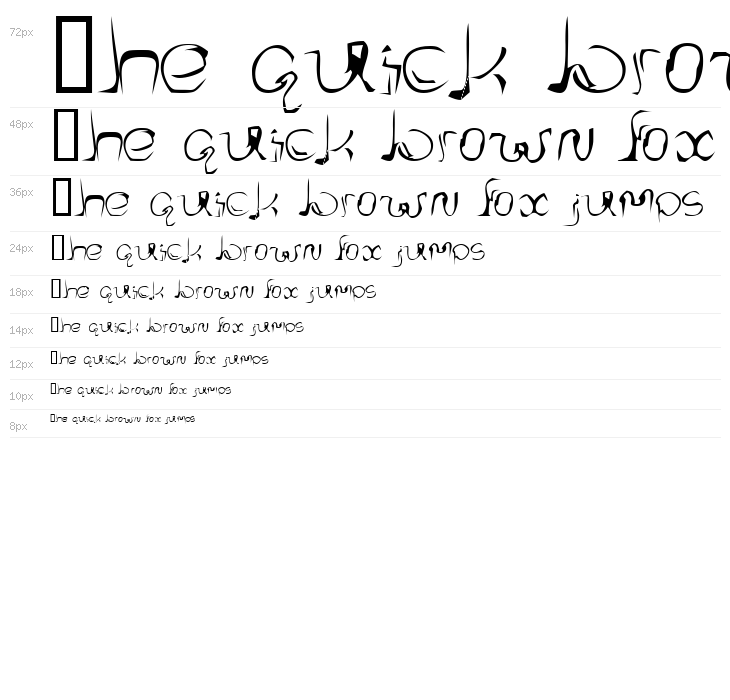 72px ▯he quick brow
48px ▯he quick brown fox
36px ▯he quick brown fox jumps
24px ▯he quick brown fox jumps
18px ▯he quick brown fox jumps
14px ▯he quick brown fox jumps
12px ▯he quick brown fox jumps
10px ▯he quick brown fox jumps
8px ▯he quick brown fox jumps